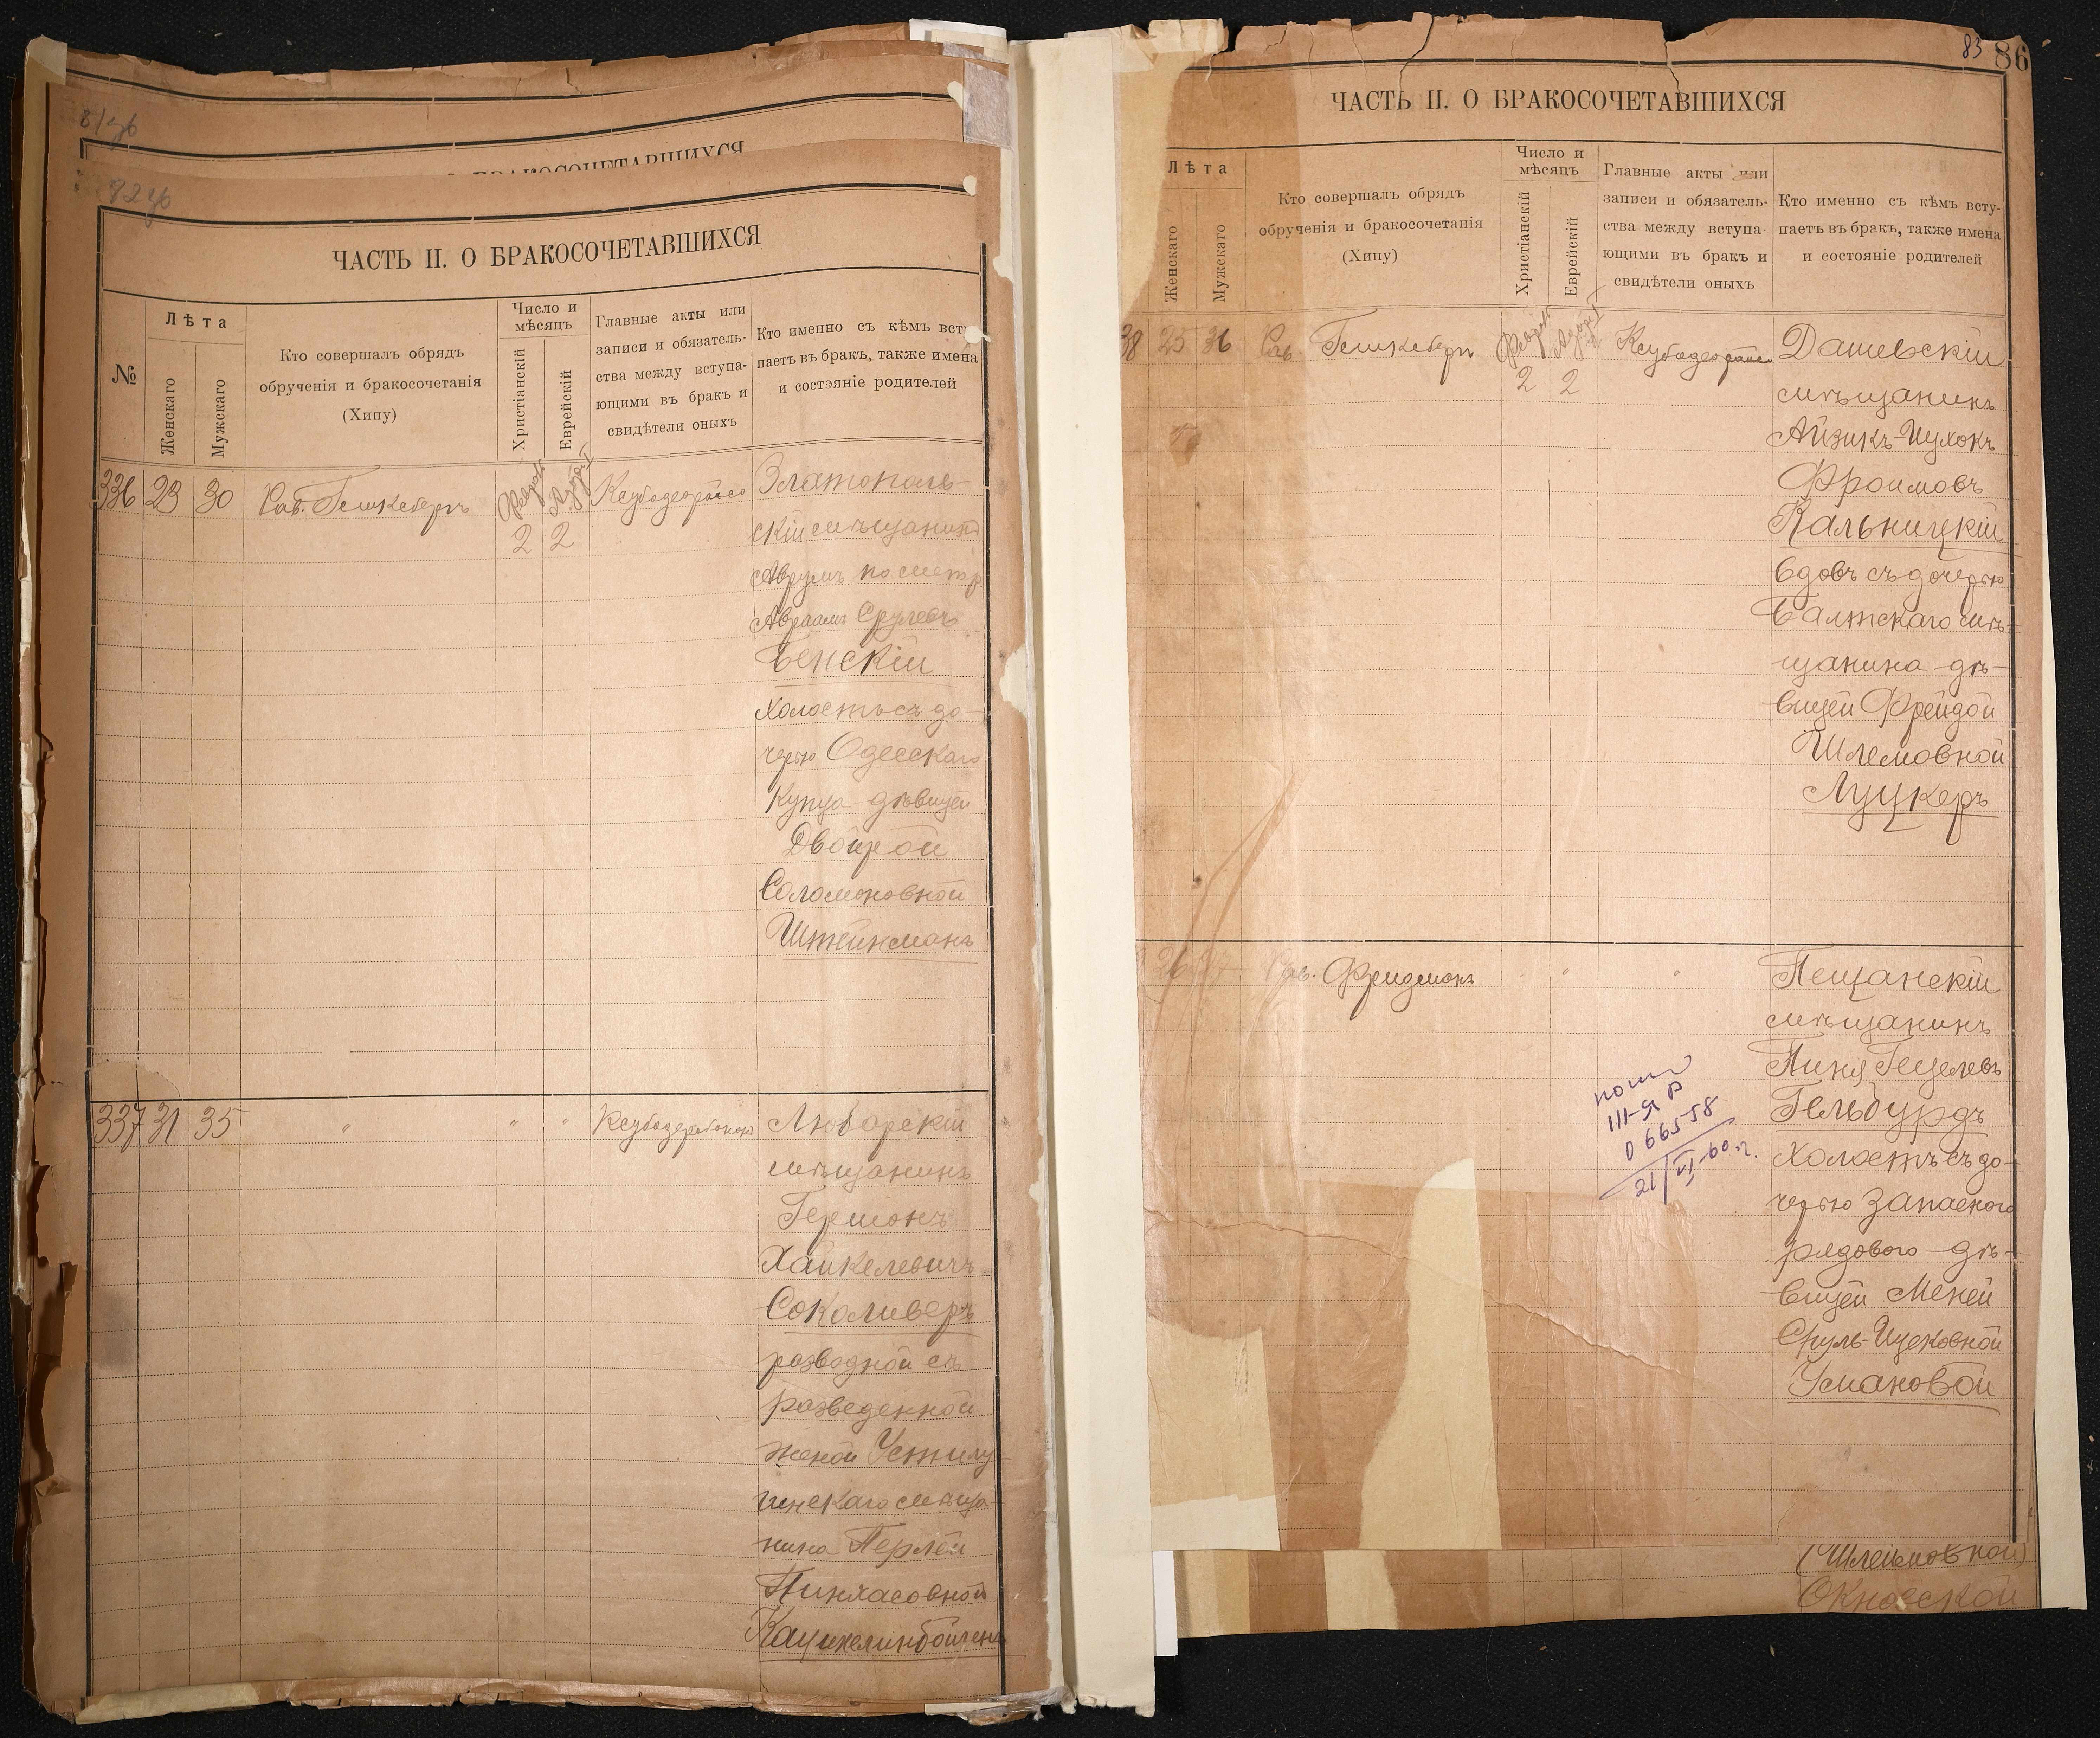 81об
82об
ЧАСТЬ II. О БРАКОСОЧЕТАВШИХСЯ
№
Лѣта
Женскаго
Мужскаго
Кто совершалъ обрядъ
обрученія и бракосочетанія
(Хипу)
Число и
мѣсяцъ
Христіанскій
Еврейскій
Главные акты или
записи и обязатель-
ства между вступа-
ющими въ бракъ и
свидѣтели оныхъ
Кто именно съ кѣмъ всту
паетъ въ бракъ, также имена
и состояніе родителей
336 23 30 Рав. Гешкеберъ
2 2
Златополь-
скій мѣщанинъ
Аврумъ по метр
Авраамъ Срулевъ
Бенскій
холостъ съ до-
черью Одесскаго
купца дѣвицей
Двойрой
Соломоновной
Штейнманъ
337 31 35 " " "
Любарскій
мѣщанинъ
Гершонъ
Хайкелевичъ
Соколиверъ
разводной съ
разведенной
женой Устилу-
гинскаго мѣща-
нина Перлей
Пинхасовной
83 86
ЧАСТЬ II. О БРАКОСОЧЕТАВШИХСЯ
Лѣта
Женскаго
Мужскаго
Кто совершалъ обрядъ
обрученія и бракосочетанія
(Хипу)
Число и
мѣсяцъ
Христіанскій
Еврейскій
Главные акты или
записи и обязатель-
ства между вступа-
ющими въ бракъ и
свидѣтели оныхъ
Кто именно съ кѣмъ всту-
паетъ въ бракъ, также имена
и состояніе родителей
38 25 36 Рав. Гешкеберъ
2 2
Дашевскій
мѣщанинъ
Айзикъ-Ицхокъ
Фроимовъ
Кальницкій
вдовъ съ дочерью
Балтскаго мѣ-
щанина дѣ-
вицей Фрейдой
Шлемовной
Луцкеръ
26 27 Рав. Фридманъ " "
Пещанскій
мѣщанинъ
Пиня Гецелевъ
Гельбурдъ
холостъ съ до-
черью запаснаго
рядового дѣ-
вицей Меней
Сруль-Ицековной
Усмановой
III-Я Р
066558
21/VI-60 г.
(Шлеймовной)